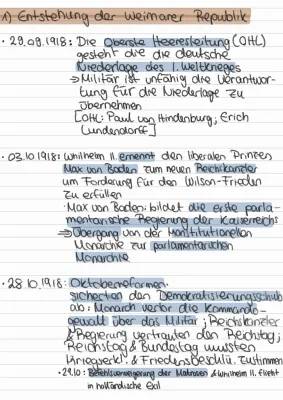 1) Entstehung der Weimarer Republik
· 29.09.1918: Die Oberste Heeresleitung (OHL)
gesteht die die deutsche
Niederlage des 1. Weltkrieges
→ Militär ist unfähig die Verantwor-
tung für die Niederlage zu
übernehmen
[OHL: Paul von Hindenburg; Erich
Lundendorff]
· 03.10.1918: Whilhelm II. ernennt den liberalen Prinzen
Max von Baden zum neuen Reichskanzler
um Forderung für den Wilson-Frieden
zu erfüllen
· Max von Baden: bildet die erste parla-
mentarische Regierung der Kaiserreichs
⇒ Übergang von der konstitutionellen
Monarchie zur parlamentarischen
Monarchie
· 28.10.1918: Oktoberreformen:
sicherten den Demokratisierungsschub
ab: Monarch verlor die Kommando-
gewalt über das Militär; Reichskanzler
& Regierung vertrauten den Reichstag;
Reichstag & Bundestag mussten
Kriegserkl. & Friedensbeschlü. zustimmen
· 29.10: Befehlsverweigerung der Matrosen & Whilhelm II. flieht
in holländische Exil